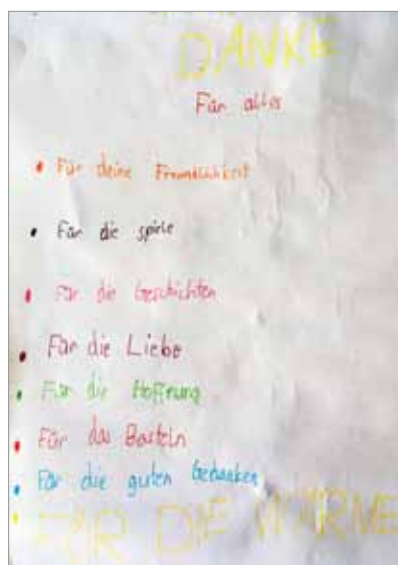 DANKE
Für alles
• Für deine Freundlichkeit
• Für die spiele
• Für die Geschichten
• Für die Liebe
• Für die Hoffnung
• Für das Basteln
• Für die guten Gedanken
• FÜR DIE WÄRME